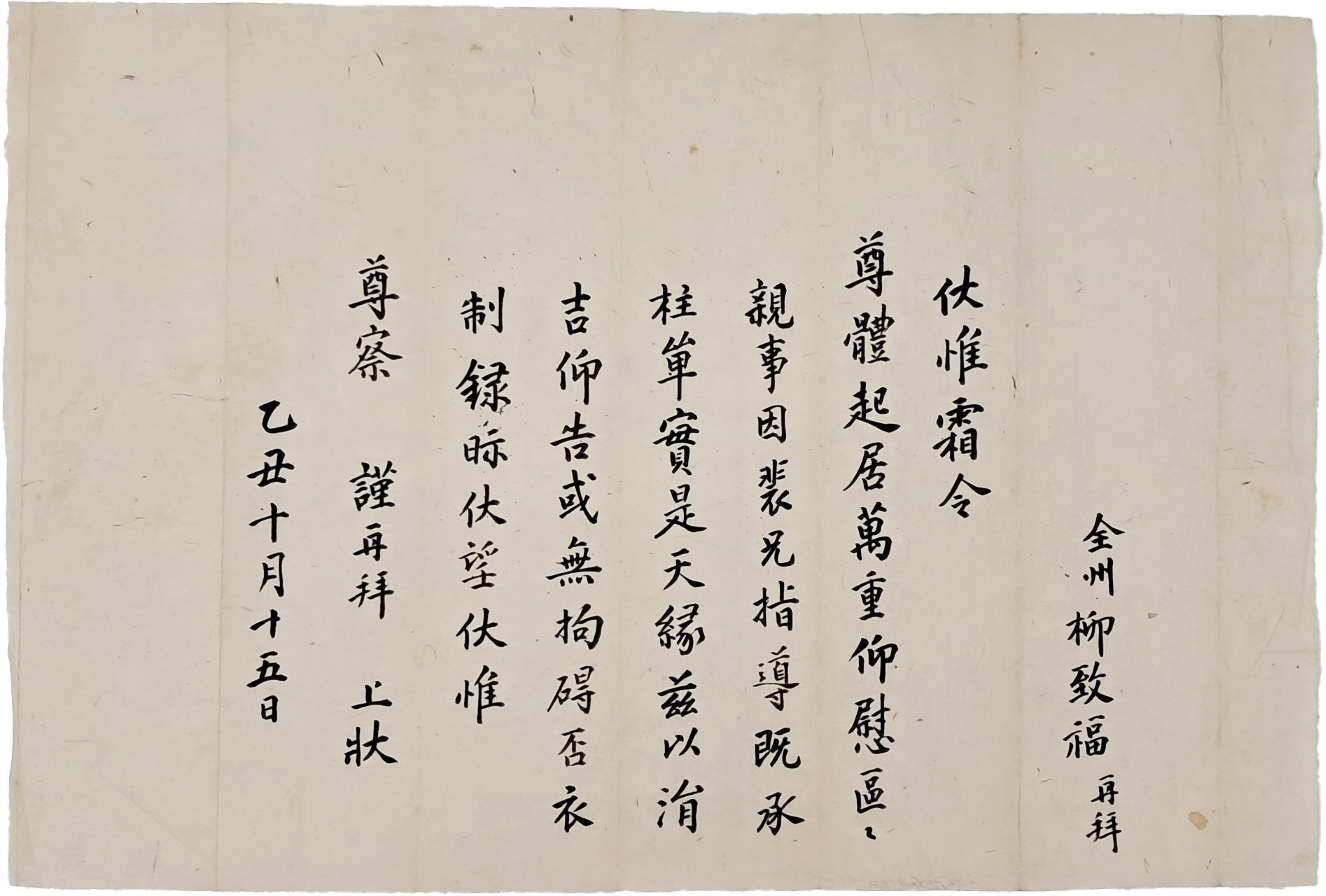 全州柳致福再拜
伏惟霜令
尊體起居萬重仰慰區〻
親事因裴兄指導旣承
柱單實是天緣玆以涓
吉仰告或無拘碍否衣
制録眎伏望伏惟
尊察 謹再拜 上狀
乙丑十月十五日